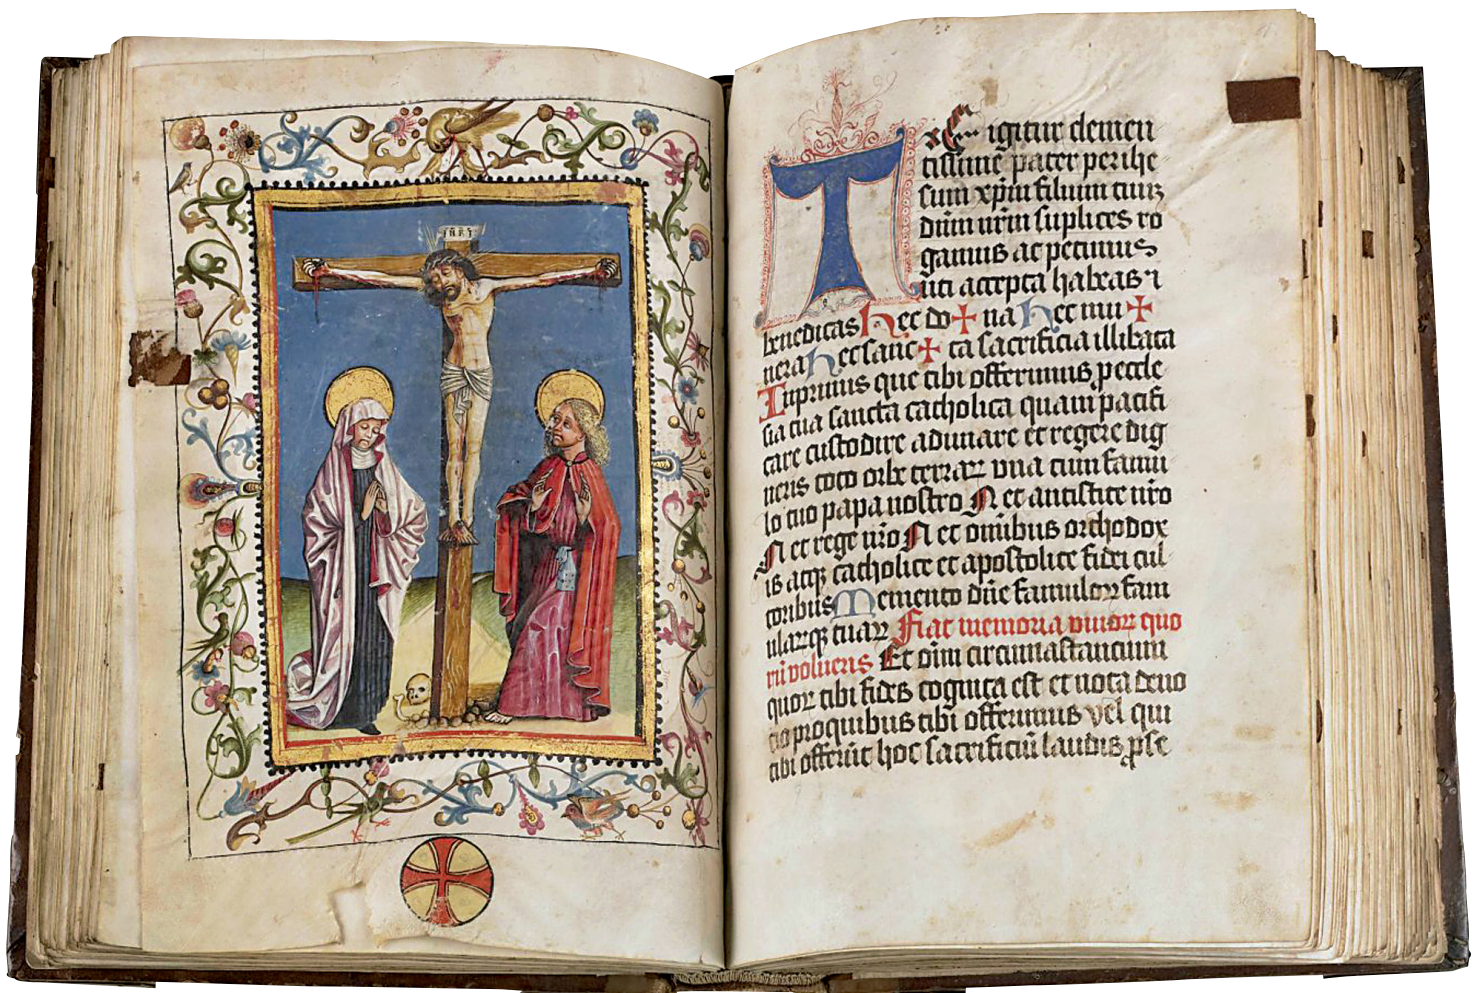 INRI
Te igitur clemen
tissime pater per ihe
sum xpm filium tuuz
dnm nrm suplices ro
gamus ac petimus
uti accepta habeas ⁊
benedicas hec do✠na hec mu✠
nera hec sanc✠ta sacrificia illibata
Inprimis que tibi offerimus p eccle
sia tua sancta catholica quam pacifi
care custodire adunare et regere dig
neris toto orbe terraꝝ vna cum famu
lo tuo papa nostro N et antistite nro
N et rege nro N et omibus orthodox
is atqꝫ catholice et apostolice fidei cul
toribus Memento dne famuloꝝ fam
ularqꝫ tuaꝝ Fiat memoria viuoꝝ quo
rū volueris Et oīm circumastantium
quoꝝ tibi fides cognita est et nota deuo
cio pro quibus tibi offerimus vel qui
tibi offerūt hoc sacrificiū laudis p se